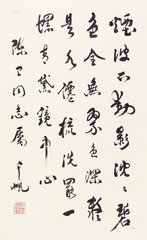 煙波不動影沈沈碧
色全無翠色深疑
是水僊梳洗罷一
螺青黛鏡中心
同志屬 千帆